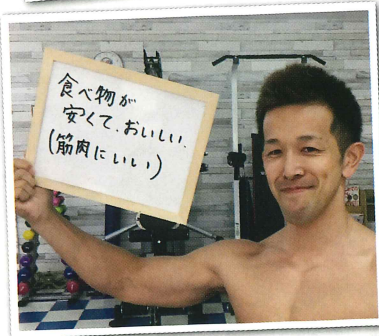 食べ物が
安くて、おいしい、
(筋肉にいい)